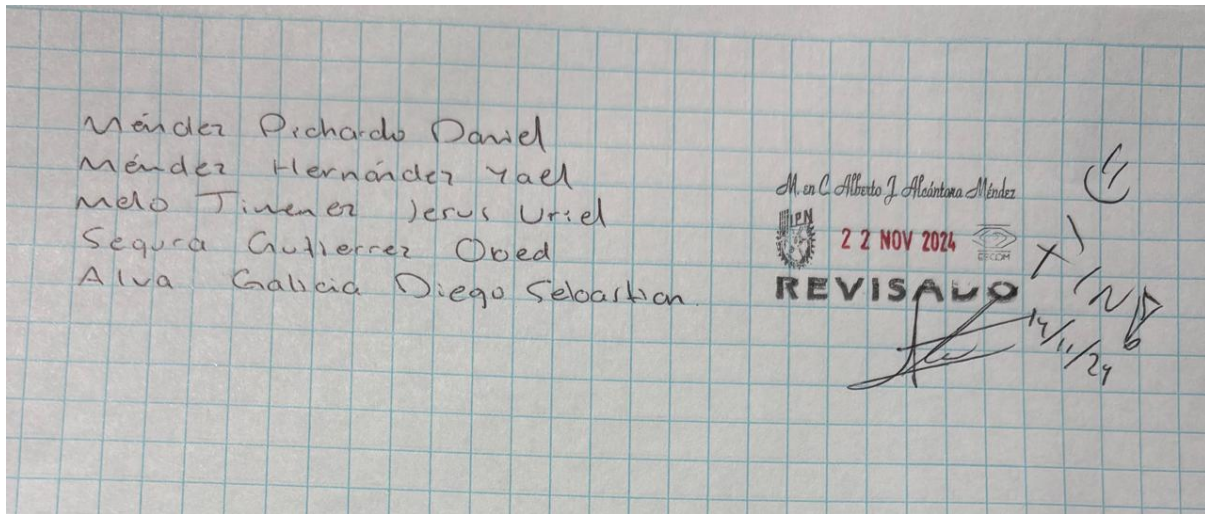 Méndez Pichardo Daniel
Méndez Hernández Yael
Melo Jimenez Jesus Uriel
Segura Gutierrez Obed
Alva Galicia Diego Sebastian.
M. en C. Alberto J. Alcántara Méndez
IPN
22 NOV 2024
ESCOM
REVISADO
14/11/24